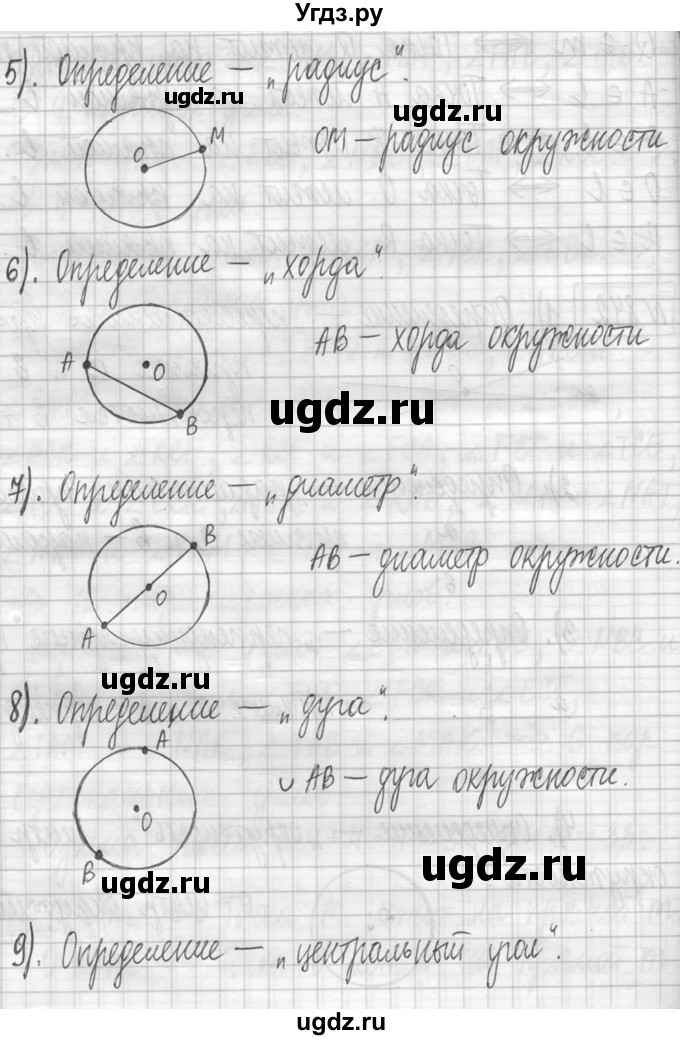 Угдз.ру
5). Определение – „радиус“.
ugdz.ru
ugdz.ru
O
M
OM – радиус окружности
6). Определение – „хорда“.
A
O
B
AB – хорда окружности
ugdz.ru
7). Определение – „диаметр“.
B
O
A
AB – диаметр окружности.
ugdz.ru
8). Определение – „дуга“.
A
O
B
∪ AB – дуга окружности.
ugdz.ru
ugdz.ru
9). Определение – „центральный угол“.
ugdz.ru